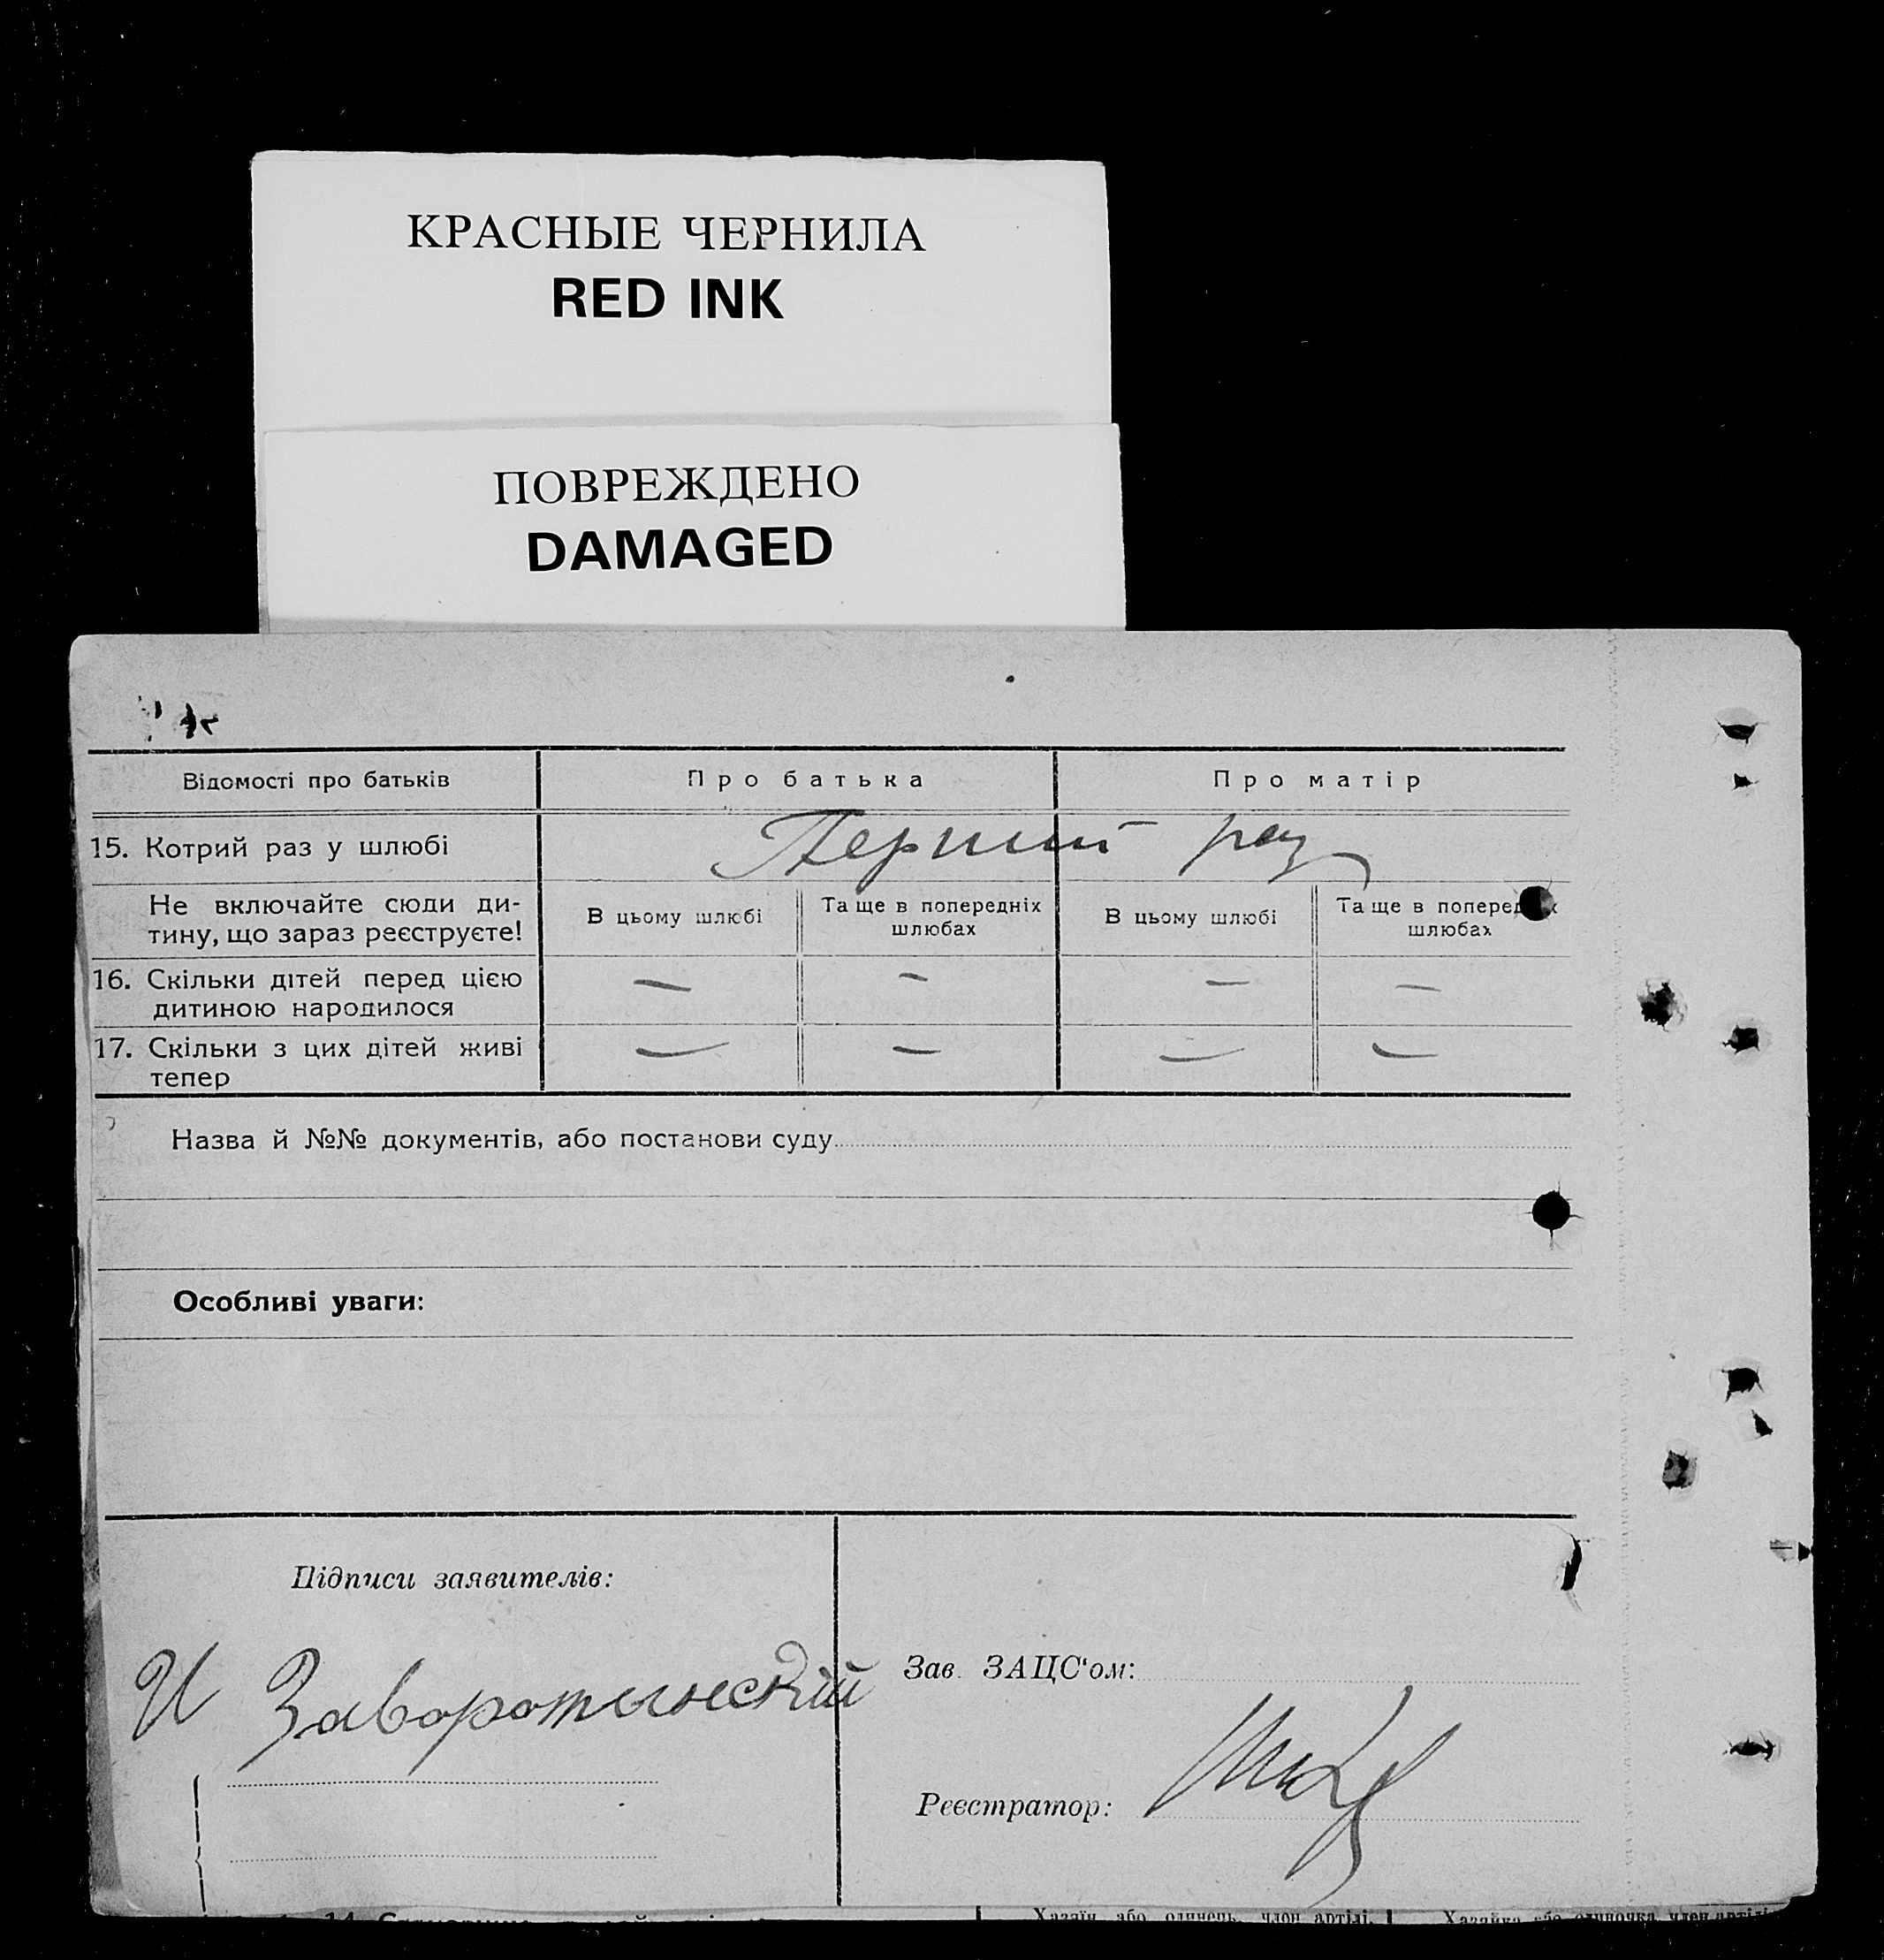 КРАСНЫЕ ЧЕРНИЛА
RED INK
ПОВРЕЖДЕНО
DAMAGED
Відомості про батьків Про батька Про матір
15. Котрий раз у шлюбі Перший раз
Не включайте сюди ди-
тину, що зараз реєструєте!
В цьому шлюбі
Та ще в попередніх
шлюбах
В цьому шлюбі
Та ще в
шлюбах
16. Скільки дітей перед цією
дитиною народилося
— — — —
17. Скільки з цих дітей живі
тепер
— — — —
Назва й №№ документів, або постанови суду
Особливі уваги:
Підписи заявителів:
И Заворотинский
Зав. ЗАЦС'ом:
Реєстратор:
Хазяїн або одинець, член артілі.